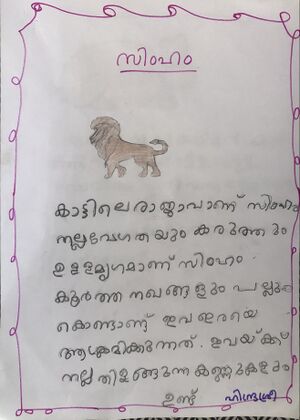 സിംഹം
കാട്ടിലെ രാജാവാണ് സിംഹം
നല്ലവേഗതയും കരുത്തും
ഉള്ളമൃഗമാണ് സിംഹം.
കൂർത്ത നഖങ്ങളും പല്ലും
കൊണ്ടാണ് ഇവ ഇരയെ
ആക്രമിക്കുന്നത്. ഇവയ്ക്ക്
നല്ല തിളങ്ങുന്ന കണ്ണുകളും
ഉണ്ട്